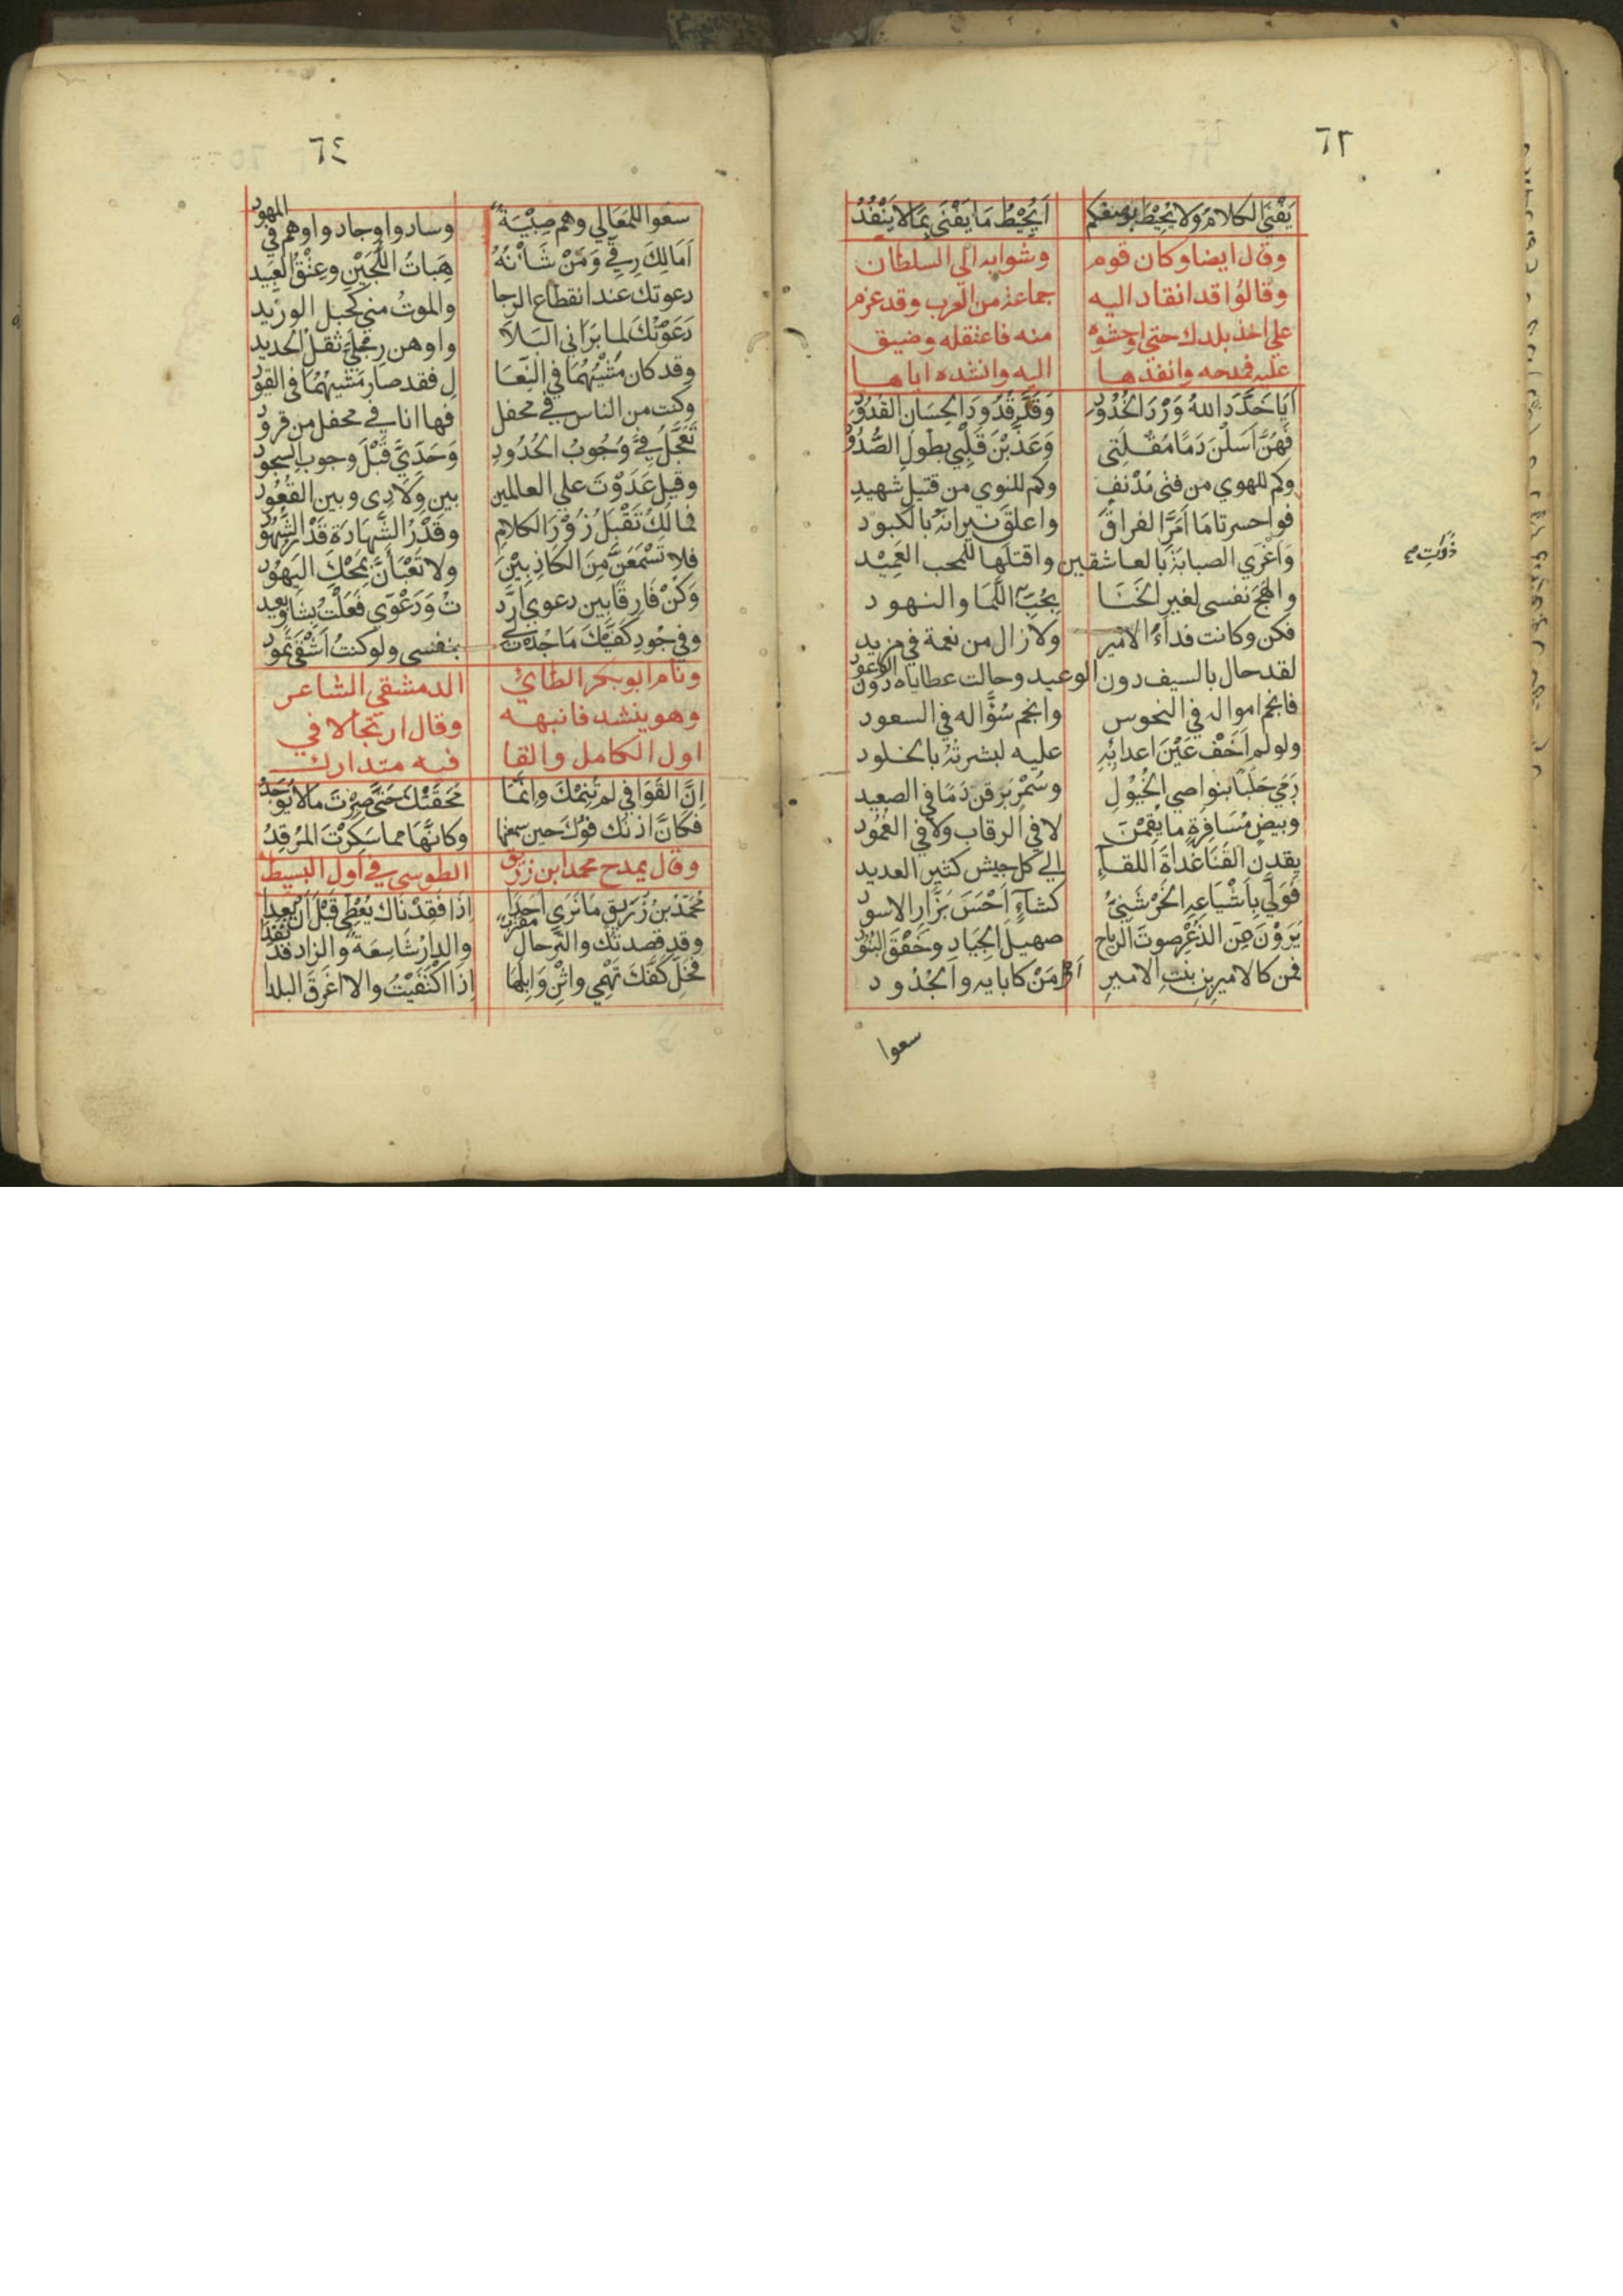 ٦٣
يَفْنَى الكلامُ ولا يُحِيْطُ بوصفكم اَيُحِيْطُ مَا يَفْنَى بِمَا لا يَنْفَدُ
وقال ايضا وكان قوم وشوا به الي السلطان
وقالوا قد انقاد اليه جماعة من العرب وقد عزم
علي اخذ بلدك حتى اوحشوه منه فاعتقله وضيق
عليه فمدحه وانفذها اليه وانشده اياها
اَيَا خَدَّدَ اللهُ وَرْدَ الخُدُوْدِ وَقَدَّ قُدُوْدَ الحِسَانِ القُدُوْدِ
فَهُنَّ اَسَلْنَ دَمًا مُقْلَتِى وَعَذَّبْنَ قَلْبِي بِطُولِ الصُّدُوْدِ
وكم للهوي من فتى مُدْنَفٍ وكم للنوي من قتيلٍ شهيدِ
فواحسرتا مَا اَمَرَّ الفراقَ واعلقَ نيرانَهُ بالكبود
وَاَغْرَي الصبابةَ بالعاشقين واقتلَها للمحب العَمِيْد
والهَجَ نفسى لغير الخَنَا بِحُبِّ اللَّمَا والنهود
فكن وكانت فداءَ الامير ولا زال من نعمة في مزيد
لقد حال بالسيف دون الوعيد وحالت عطاياه دون الوعود
فانجم امواله في النحوس وانجم سُؤَّاله في السعود
ولو لم اَخَفْ عَيْنَ اعدائِهِ عليه لبشرتُهُ بالخلود
رَمَي حَلَبًا بنواصي الخُيُوْلِ وسُمْرٍ يَرقن دَمًا في الصعيد
وبيضٍ مُسَافِرةٍ ما يُقِمْنَ لا في الرقاب ولا في الغُمُوْدِ
يقدن القَنَا غَدَاةَ اللقاءِ الي كل جيش كثير العديد
فَوَلَّي بِاَشْيَاعِهِ الخَرْشَنِيُّ كشاءٍ اَحْسَّ بزَأْرِ الاسود
يَرَوْنَ مِنَ الذُعْرِ صوتَ الرياح صهيلَ الجِيَادِ وخَفْقَ البُنُوْدِ
فمن كالامير بن بنت الامير اَمْ مَنْ كابايه والجُدُود
ذَكَرْتِ صح
سعوا
٦٤
سعَوا للمَعَالي وهم صِبْيَةٌ وسادوا وجادوا وهم في المهود
اَمَالِكَ رِقِّي وَمَنْ شَأْنُهُ هِبَاتُ اللُّجَيْنِ وعِتْقُ العَبِيد
دعوتك عند انقطاع الرجا والموتُ مني كحبل الوريد
دَعَوْتُكَ لما بَرَانِي البَلَا واوهن رِجْلَيَّ ثقلُ الحديد
وقد كان مَشْيُهُمَا في النِّعَا لِ فقد صار مَشيُهُمَا في القيود
وكنت من الناس في محفل فها انا في محفل من قرود
تُعَجَّلُ فِيَّ وُجُوبُ الحُدُودِ وَحَدِّيَ قَبْلَ وجوب السجود
وقيل عَدَوْتَ علي العالمين بين وِلادى وبين القُعُود
فمالَكَ تَقْبَلُ زُوْرَ الكلامِ وقَدْرُ الشَّهادَةِ قَدْرُ الشُّهُوْدِ
فلا تَسْمَعَنَّ مِنَ الكَاذِبِيْنَ ولا تَعْبَأَنَّ بِمَحْكِ اليَهُوْد
وَكُنْ فَارِقًا بين دعوي اَرَدْ تُ وَدَعْوَي فَعَلْتُ بِشَأْوٍ بعيد
وفي جُودِ كفَّيكَ مَا جُدْتَ لي بنفسى ولو كنتُ اَشْقَى ثَمُوْدِ
ونام ابو بكر الطائي الدمشقي الشاعر
وهو ينشد فانبهه وقال ارتجالا في
اول الكامل والقا فيه متدارك
اِنَّ القَوَافِي لم تُنِمْكَ وانَّمَا مَحَقَتْكَ حَتَّى صِرْتَ مَا لا يُوْجَدُ
فكَانَّ اذنك فوك حين سمعتها وكانَّهَا مما سَكِرْتَ المُرْقِدُ
وقال يمدح محمد ابن زريق الطوسي في اول البسيط
مُحَمَّدُ بنُ زُرَيقٍ مَا نَرَي اَحَدًا اِذَا فَقَدْنَاكَ يُعْطِي قَبْلَ اَنْ يَعِدا
وقد قصدتك والتَّرحالُ مقتربٌ والدارُ شَاسِعَةٌ والزاد قد نَفَدَا
فَخَلِّ كَفَّكَ تَهْمِي واثْنِ وَابِلَهَا اِذَا اكْتَفَيْتُ والا اغرَقَ البلدا